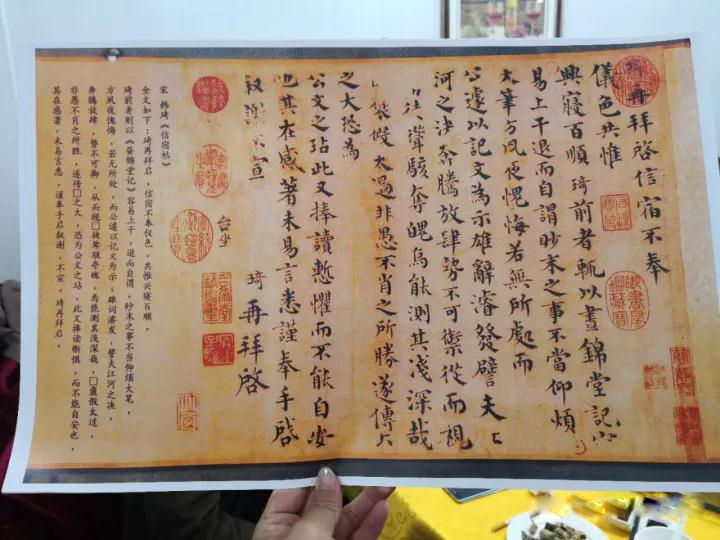 琦再拜啓信宿不奉
儀色共惟
興寢百順琦前者輒以晝錦堂記容
易上干退而自謂眇末之事不當仰煩
大筆方夙夜愧悔若無所處而
公遽以記文為示雄辭濬發譬夫
河之決奔騰放肆勢不可禦從而視
徒聳駭奪魄烏能測其淺深哉
褒假太過非愚不肖之所勝遂傳
之大恐為
公文之玷此又捧讀慙懼而不能自安
也其在感著未易言悉謹奉手啓
叙謝不宣
琦再拜啓
台坐
宋 韩琦《信宿帖》
全文如下：琦再拜启，信宿不奉仪色，共惟兴寝百顺。
琦前者辄以《昼锦堂记》容易上干，退而自谓，眇末之事不当仰烦大笔，
方夙夜愧悔，若无所处，而公遽以记文为示，雄词濬发，譬夫江河之决，
奔腾放肆，势不可御，从而视□徒耸骇夺魄，乌能测其浅深哉，□褒假太过，
非愚不肖之所胜，遂传□之大，恐为公文之玷，此又捧读惭惧，而不能自安也，
其在感著，未易言悉，谨奉手启叙谢，不宣。琦再拜启。